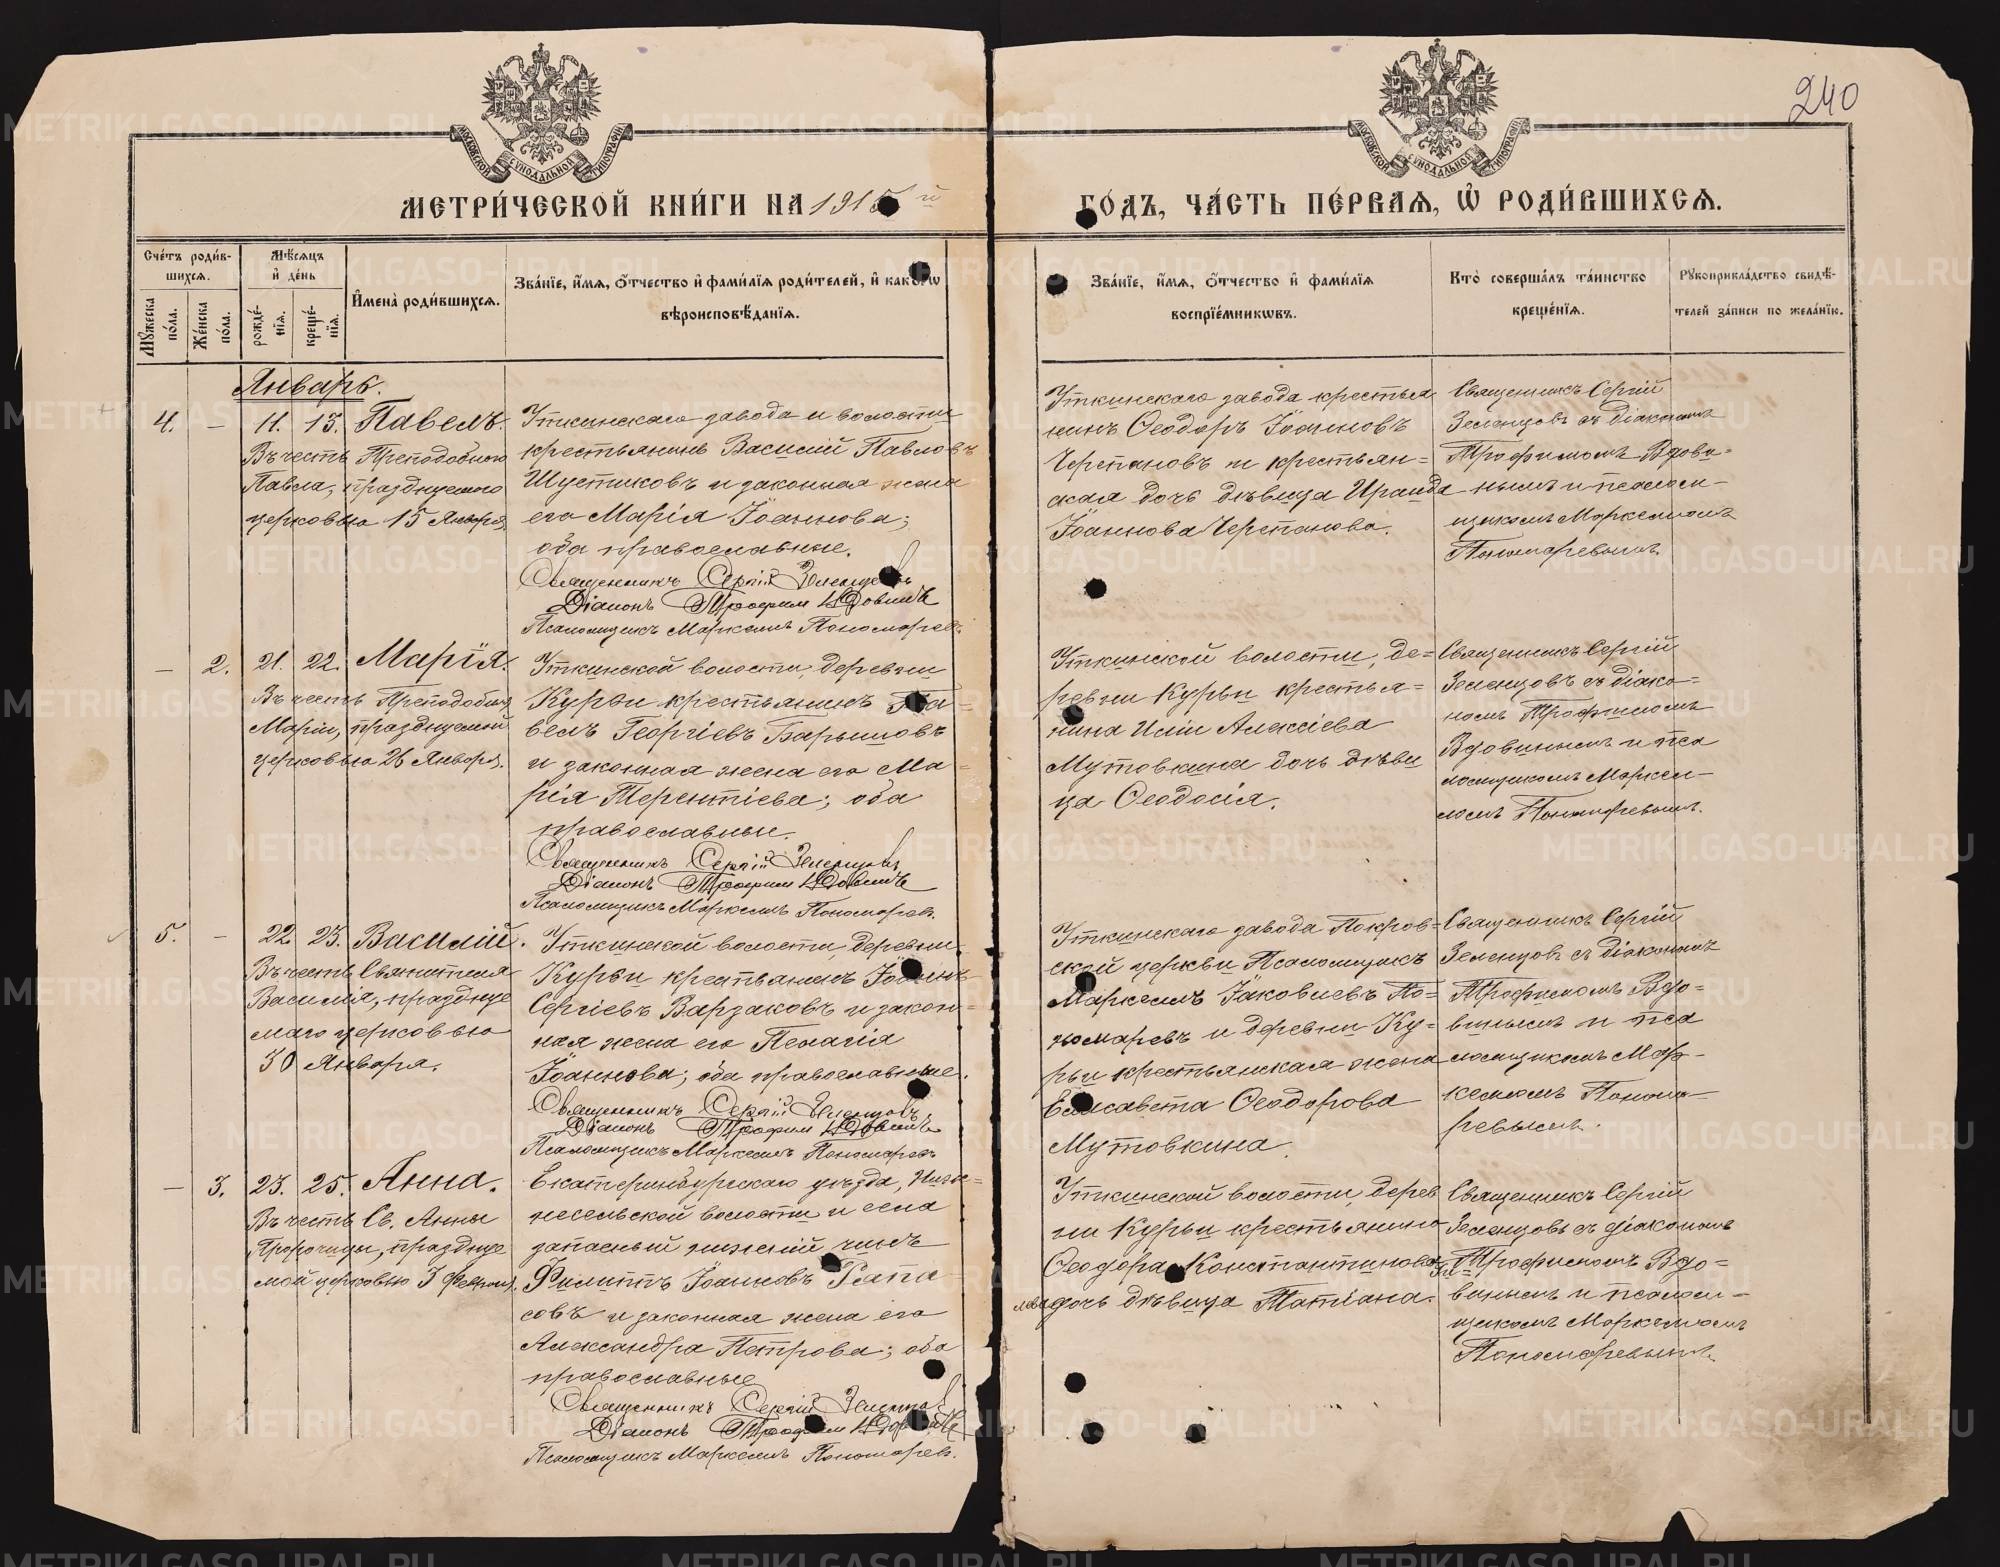 240
МОСКОВСКОЙ СУНОДАЛЬНОЙ ТИПОГРАФІИ
МОСКОВСКОЙ СУНОДАЛЬНОЙ ТИПОГРАФІИ
МЕТРИ́ЧЕСКОЙ КНИ́ГИ НА 1915 й
ГО́ДЪ, ЧА́СТЬ ПЕ́РВАѦ, Ѡ҆ РОДИ́ВШИХСѦ.
Сче́тъ роди́в-
шихсѧ.
Мꙋжеска по́ла.
Же́нска по́ла.
Мѣ́сѧцъ
и҆ де́нь
рожде́-
нїѧ.
креще́-
нїѧ.
И҆мена̀ роди́вшихсѧ.
Зва́нїе, и҆́мѧ, ѻ҆́тчество и҆ фами́лїѧ роди́телей, и҆ како́гѡ
вѣроисповѣ́данїѧ.
Зва́нїе, и҆́мѧ, ѻ҆́тчество и҆ фами́лїѧ
воспрїе́мникѡвъ.
Кто̀ соверша́лъ та́инство
креще́нїѧ.
Рꙋкоприкла́дство свидѣ́-
телей за́писи по жела́нїю.
Январь.
4. – 11. 13. Павелъ.
Въ честь Преподобного
Павла, празднуемого
церковью 15 Января,
Уткинскаго завода и волости
крестьянинъ Василій Павловъ
Шустиковъ и законная жена
его Марія Іоаннова;
оба православные.
Священникъ Сергій Зеленцовъ
Діаконъ Трофим Вдовинъ
Псаломщикъ Маркеллъ Пономарев.
Уткинскаго завода крестья
нинъ Ѳеодоръ Іоанновъ
Черепановъ и крестьян-
ская дочь дѣвица Ираида
Іоаннова Черепанова.
Священникъ Сергій
Зеленцовъ съ діакономъ
Трофимомъ Вдови-
нымъ и псалом-
щикомъ Маркелломъ
Пономаревымъ.
– 2. 21. 22. Марія.
Въ честь Преподобныя
Маріи, празднуемой
церковью 26 Января.
Уткинской волости, деревни
Курьи крестьянинъ Па-
велъ Георгіевъ Барышовъ
и законная жена его Ма-
рія Терентіева; оба
православные.
Священникъ Сергій Зеленцовъ
Діаконъ Трофим Вдовинъ
Псаломщикъ Маркеллъ Пономарев.
Уткинской волости, де-
ревни Курьи крестья-
нина Иліи Алексіева
Мутовкина дочь дѣви
ца Ѳеодосія.
Священникъ Сергій
Зеленцовъ съ діако-
номъ Трофимомъ
Вдовинымъ и пса
ломщикомъ Маркел-
ломъ Пономаревымъ.
5. – 22. 23. Василій.
Въ честь Святителя
Василія, праздную
маго церковью
30 Января.
Уткинской волости, деревни
Курьи крестьянинъ Іоаннъ
Сергіевъ Варзаковъ и закон-
ная жена его Пелагія
Іоаннова; оба православные.
Священникъ Сергій Зеленцовъ
Діаконъ Трофим Вдовинъ
Псаломщикъ Маркеллъ Пономаревъ
Уткинскаго завода Покров-
ской церкви Псаломщикъ
Маркеллъ Іаковлевъ По-
номаревъ и деревни Ку-
рьи крестьянская жена
Елисавета Ѳеодорова
Мутовкина.
Священникъ Сергій
Зеленцовъ съ діакономъ
Трофимомъ Вдо-
винымъ и пса
ломщикомъ Мар-
келломъ Понома-
ревымъ.
– 3. 23. 25. Анна.
Въ честь Св. Анны
Пророчицы, праздную
мой церковью 3 Февраля.
Екатеринбургскаго уѣзда, Ниж-
несельской волости и села
запасный нижній чинъ
Филиппъ Іоанновъ Гапа
совъ и законная жена его
Александра Петрова; оба
православные
Священникъ Сергій Зеленцов
Діаконъ Трофим Вдовинъ
Псаломщикъ Маркеллъ Пономарев.
Уткинской волости, дерев
ни Курьи крестьянина
Ѳеодора Константинова
дочь дѣвица Татіана.
Священникъ Сергій
Зеленцовъ съ діакономъ
Трофимомъ Вдо-
винымъ и псалом-
щикомъ Маркелломъ
Пономаревымъ.
METRIKI.GASO-URAL.RU